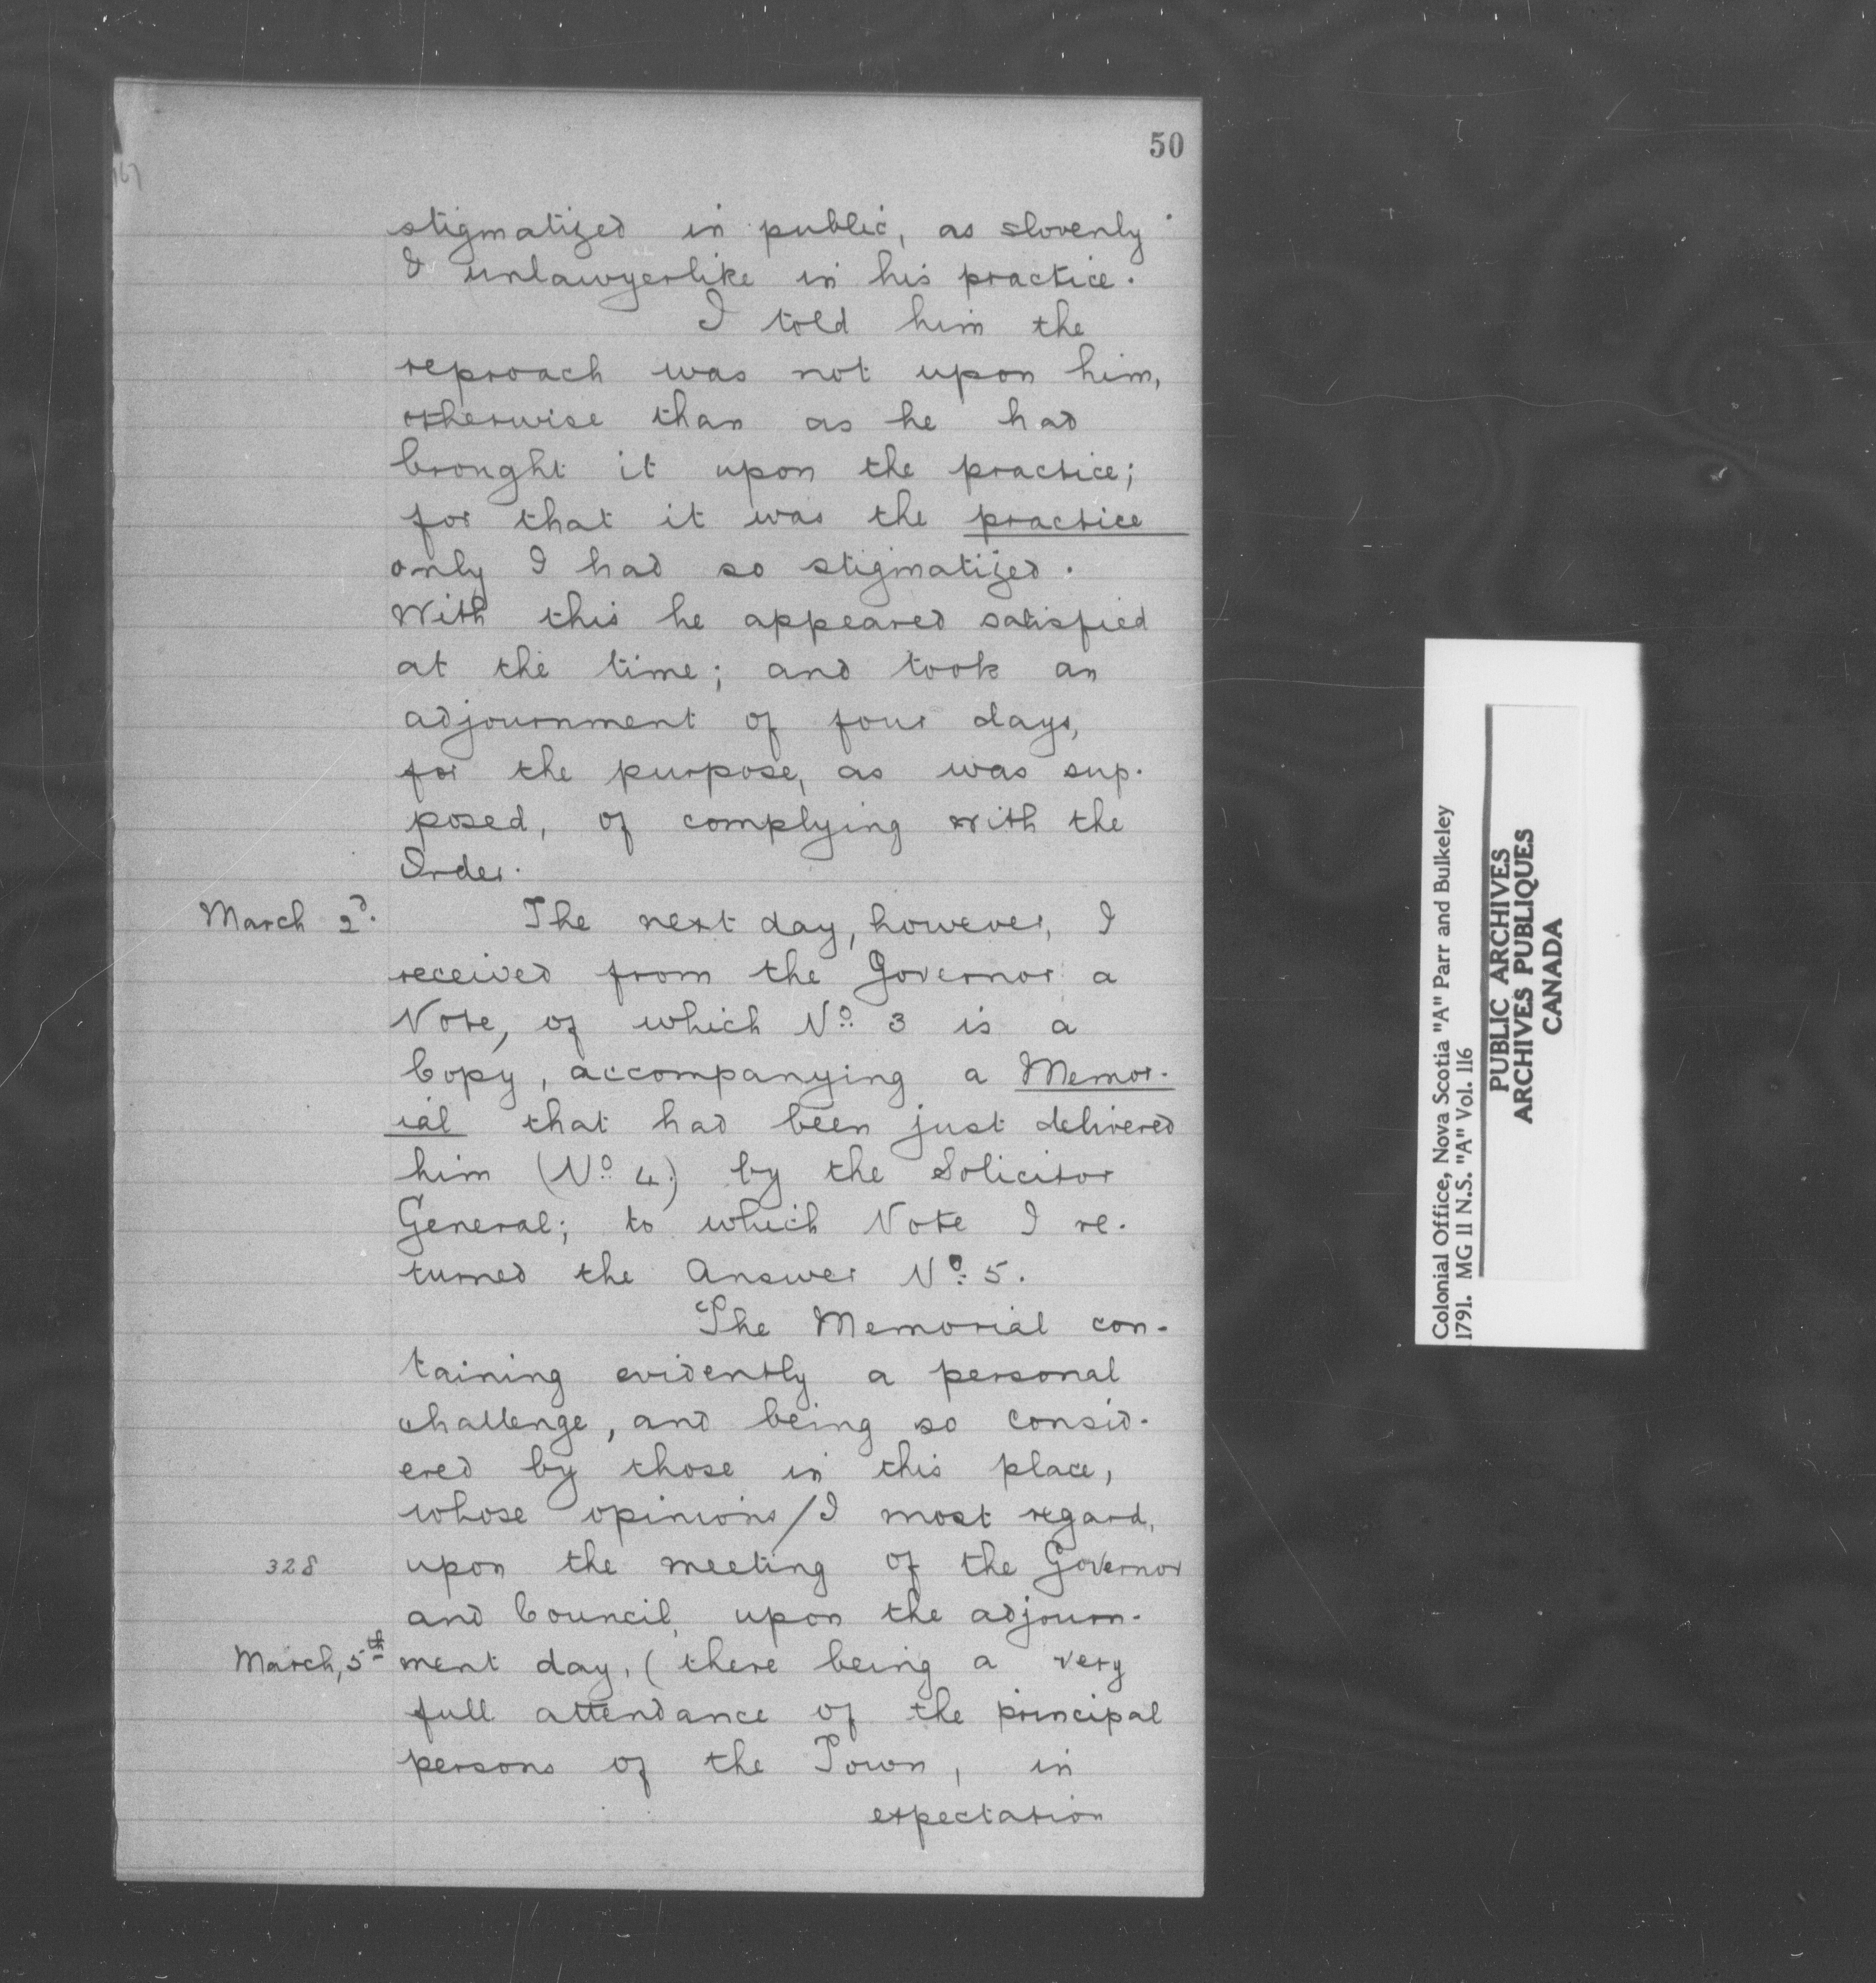 50
167
stigmatized in public, as slovenly
& unlawyerlike in his practice.
I told him the
reproach was not upon him,
otherwise than as he had
brought it upon the practice;
for that it was the practice
only I had so stigmatized.
With this he appeared satisfied
at the time; and took an
adjournment of four days,
for the purpose, as was sup-
posed, of complying with the
Order.
March 2d. The next day, however, I
received from the Governor a
Note, of which No. 3 is a
Copy, accompanying a Memor-
ial that had been just delivered
him (No. 4.) by the Solicitor
General; to which Note I re-
turned the Answer No. 5.
The Memorial con-
taining evidently a personal
challenge, and being so consid-
ered by those in this place,
whose opinions / I most regard,
328 upon the meeting of the Governor
and Council, upon the adjourn-
March, 5th ment day, (there being a very
full attendance of the principal
persons of the Town, in
expectation
Colonial Office, Nova Scotia "A" Parr and Bulkeley
1791. MG 11 N.S. "A" Vol. 116
PUBLIC ARCHIVES
ARCHIVES PUBLIQUES
CANADA